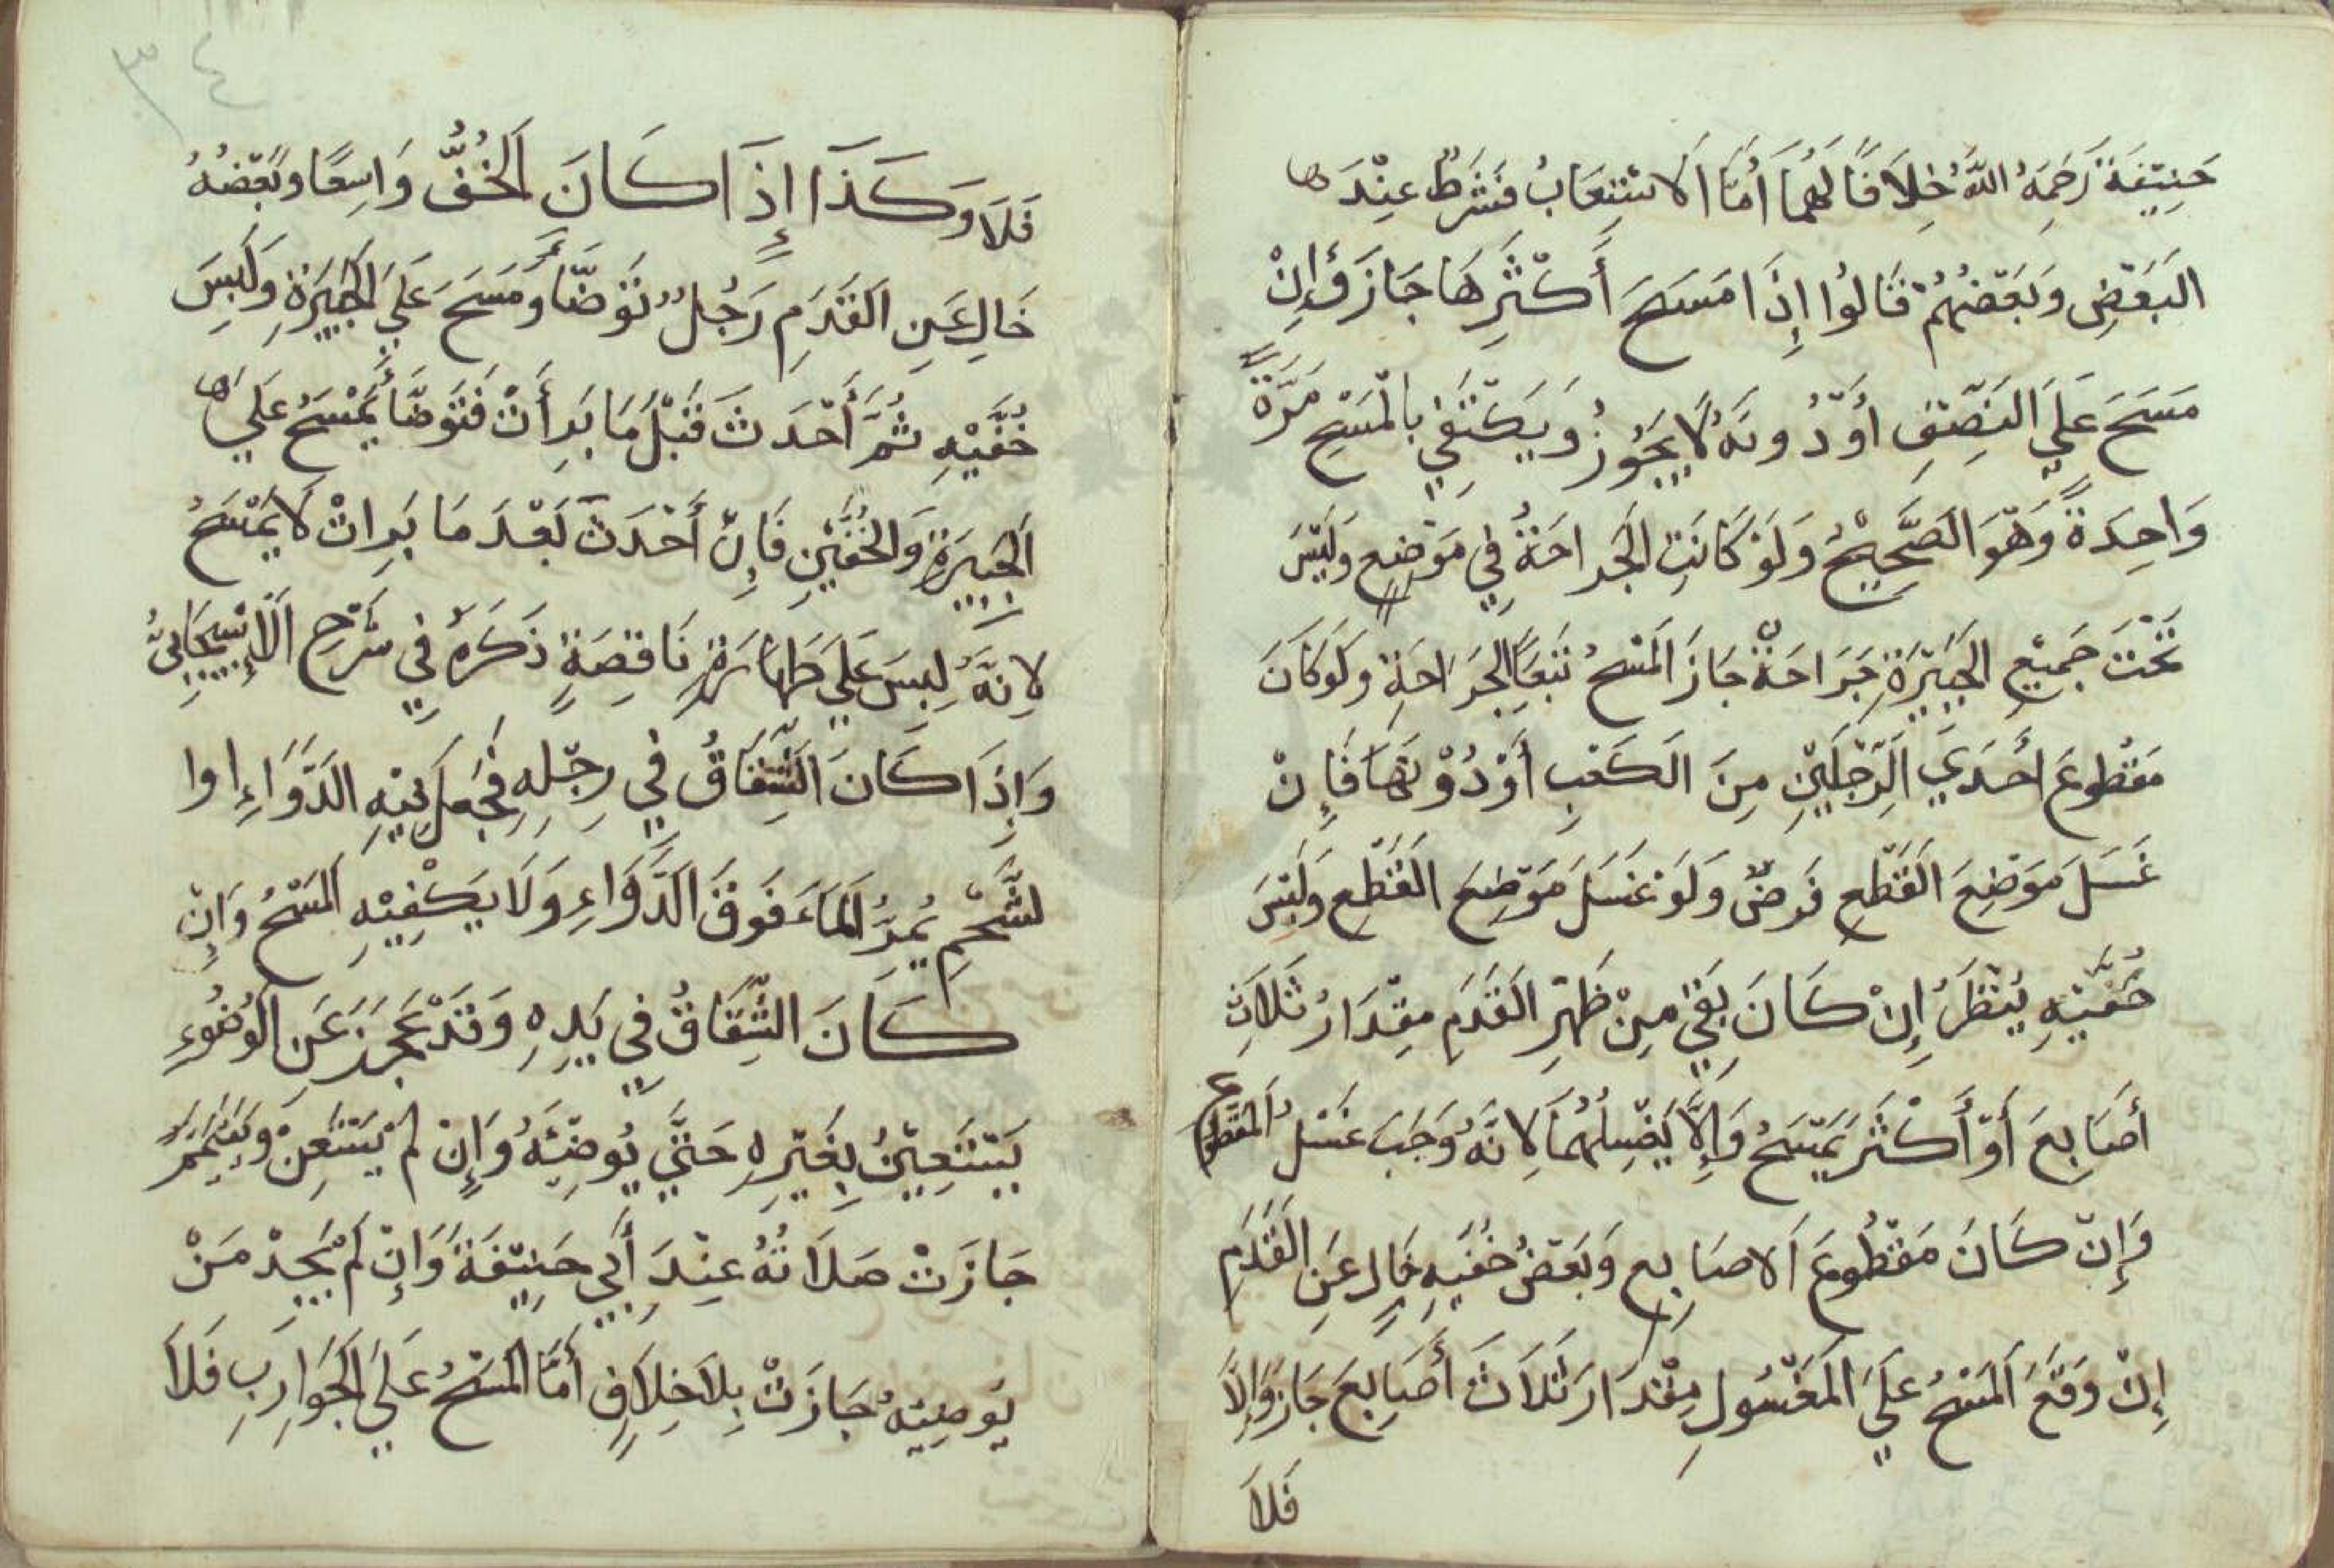 حَنِيْفَةَ رَحِمَهُ اللهُ خِلَافًا لَهُمَا أَمَّا الاسْتِيْعَابُ فَشَرْطٌ عِنْدَ
البَعْضِ وَبَعْضُهُمْ قَالُوا إِذَا مَسَحَ أَكْثَرِهَا جَازَ وَإِنْ
مَسَحَ عَلَى النِّصْفِ أَوْ دُونَهُ لَا يَجُوزُ وَيَكْتَفِي بِالْمَسْحِ مَرَّةً
وَاحِدَةً وَهْوَ الصَّحِيْحُ وَلَوْ كَانَتِ الْجَراحَةُ فِي مَوْضِعٍ وَلَيْسَ
تَحْتَ جَمِيْعِ الْجَبِيْرَةِ جَرَاحَةٌ جَازَ الْمَسْحُ تَبَعًا الْجَرَاحَةِ وَلَوْ كَانَ
مَقْطُوعَ أَحَدَي الرِّجْلَيْنِ مِنَ الْكَعْبِ أَوْ دُوْنَهَا فَإِنْ
غَسَلَ مَوْضِعَ الْقَطْعِ فَرضٌ وَلَوْ غَسَلَ مَوْضِعَ الْقَطْعِ وَلَبِسَ
خُفَّيْهِ يُنْظَرُ إِنْ كَانَ بَقِيَ مِنْ ظَهْرِ الْقَدَمِ مِقْدَارُ ثَلَاثِ
أَصَابِعَ أَوْ أَكْثَرَ يَمْسَحُ وَإِلَّا يَغْسِلُهُمَا لِانَّهُ وَجَبَ غَسْلُ الْمَقْطُوع
وَإِنْ كَانَ مَقْطُوعَ الاصَابِعِ وَبَعْضُ خُفَّيْهِ خَالٍ عَنِ الْقَدَمِ
إِنْ وَقَعَ الْمَسْحُ عَلَى الْمَغْسُولِ مِقْدَارَ ثَلَاثَ أَصَابِعَ جَازَ وَإِلَّا
فَلَا
٣٤
فَلَا وَكَذَا إِذَا كَانَ الْخُفُّ وَاسِعًا وَبَعْضُهُ
خَالٍ عَنِ الْقَدَمِ رَجُلٌ تَوَضَّأَ وَمَسَحَ عَلَى الْجَبِيْرَةِ وَلَبِسَ
خُفَّيْهِ ثُمَّ أَحْدَثَ قَبْلَ مَا بَرِأَتْ فَتَوَضَّأَ يَمْسَحُ عَلَي
الْجَبِيرَةِ وَالْخُفَّيْنِ فَإِنْ أَحْدَثَ بَعْدَ مَا بَرِاتْ لَا يَمْسَحُ
لِانَّهُ لَبِسَ عَلَى طَهَارَةٍ نَاقِصَةٍ ذَكَرَهُ فِي شَرْحِ الْإِسْبِيْجَابِيُّ
وَإِذَا كَانَ الشِّقَاقُ فِي رِجْلِهِ فَجَعَلَ فِيْهِ الدَّوَاءِ اوا
لشَّحْمِ يُمِرُّ الْمَاءَ فَوْقَ الدَّوَاءِ وَلَا يَكْفِيْهِ الْمَسْحُ وَإِنْ
كَانَ الشِّقَاقُ فِي يَدِهِ وَقَدْ عَجَزَ عَنِ الْوُضُوءِ
يَسْتَعِيْنُ بِغَيْرِهِ حَتَّي يُوضِئَهُ وَإِنْ لَمْ يَسْتَعِنْ وَتَيَمَّمَ
جَازَتْ صَلَاتُهُ عِنْدَ أَبِي حَنِيْفَةَ وَإِنْ لَمْ يَجِدْ مَنْ
يُوضِيْهُ جَازَتْ بِلَا خِلَافٍ أَمَّا الْمَسْحُ عَلَي الْجَوَارِبِ فَلَا